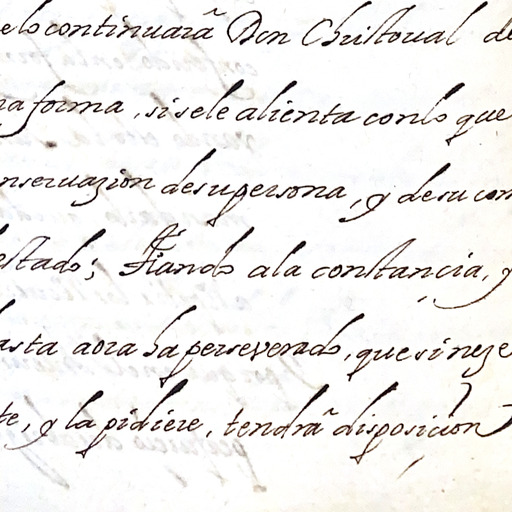 elo continuarà Don Christoual de
na forma, si sele alienta conlo que
nseruazion desupersona, y desu con
estado; Fiando ala constancia, y
asta aora ha perseverado, que si neze
te, y la pidiere, tendrà disposiciòn